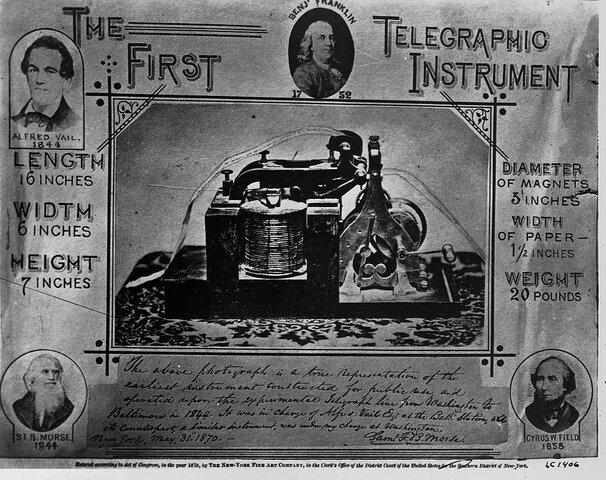 THE FIRST
BENJ' FRANKLIN
1752
TELEGRAPHIC
INSTRUMENT
ALFRED VAIL.
1844
LENGTH
16 INCHES
WIDTH
6 INCHES
HEIGHT
7 INCHES
DIAMETER
OF MAGNETS
3 INCHES
WIDTH
OF PAPER—
1½ INCHES
WEIGHT
20 POUNDS
The above photograph is a true representation of the
earliest instrument constructed for public use, and
operated upon the experimental Telegraph line from Washington to
Baltimore in 1844. It was in charge of Alfred Vail Esq at the Balt. Station, and
its Counterpart, a similar instrument, was under my charge at Washington.
New York, May, 31. 1870.—
Saml. F. B. Morse.
S.F.B. MORSE
1844
CYRUS W. FIELD
1858
Entered according to Act of Congress, in the year 1870, by THE NEW-YORK FINE ART COMPANY, in the Clerk's Office of the District Court of the United States for the Southern District of New-York.
LC 1406